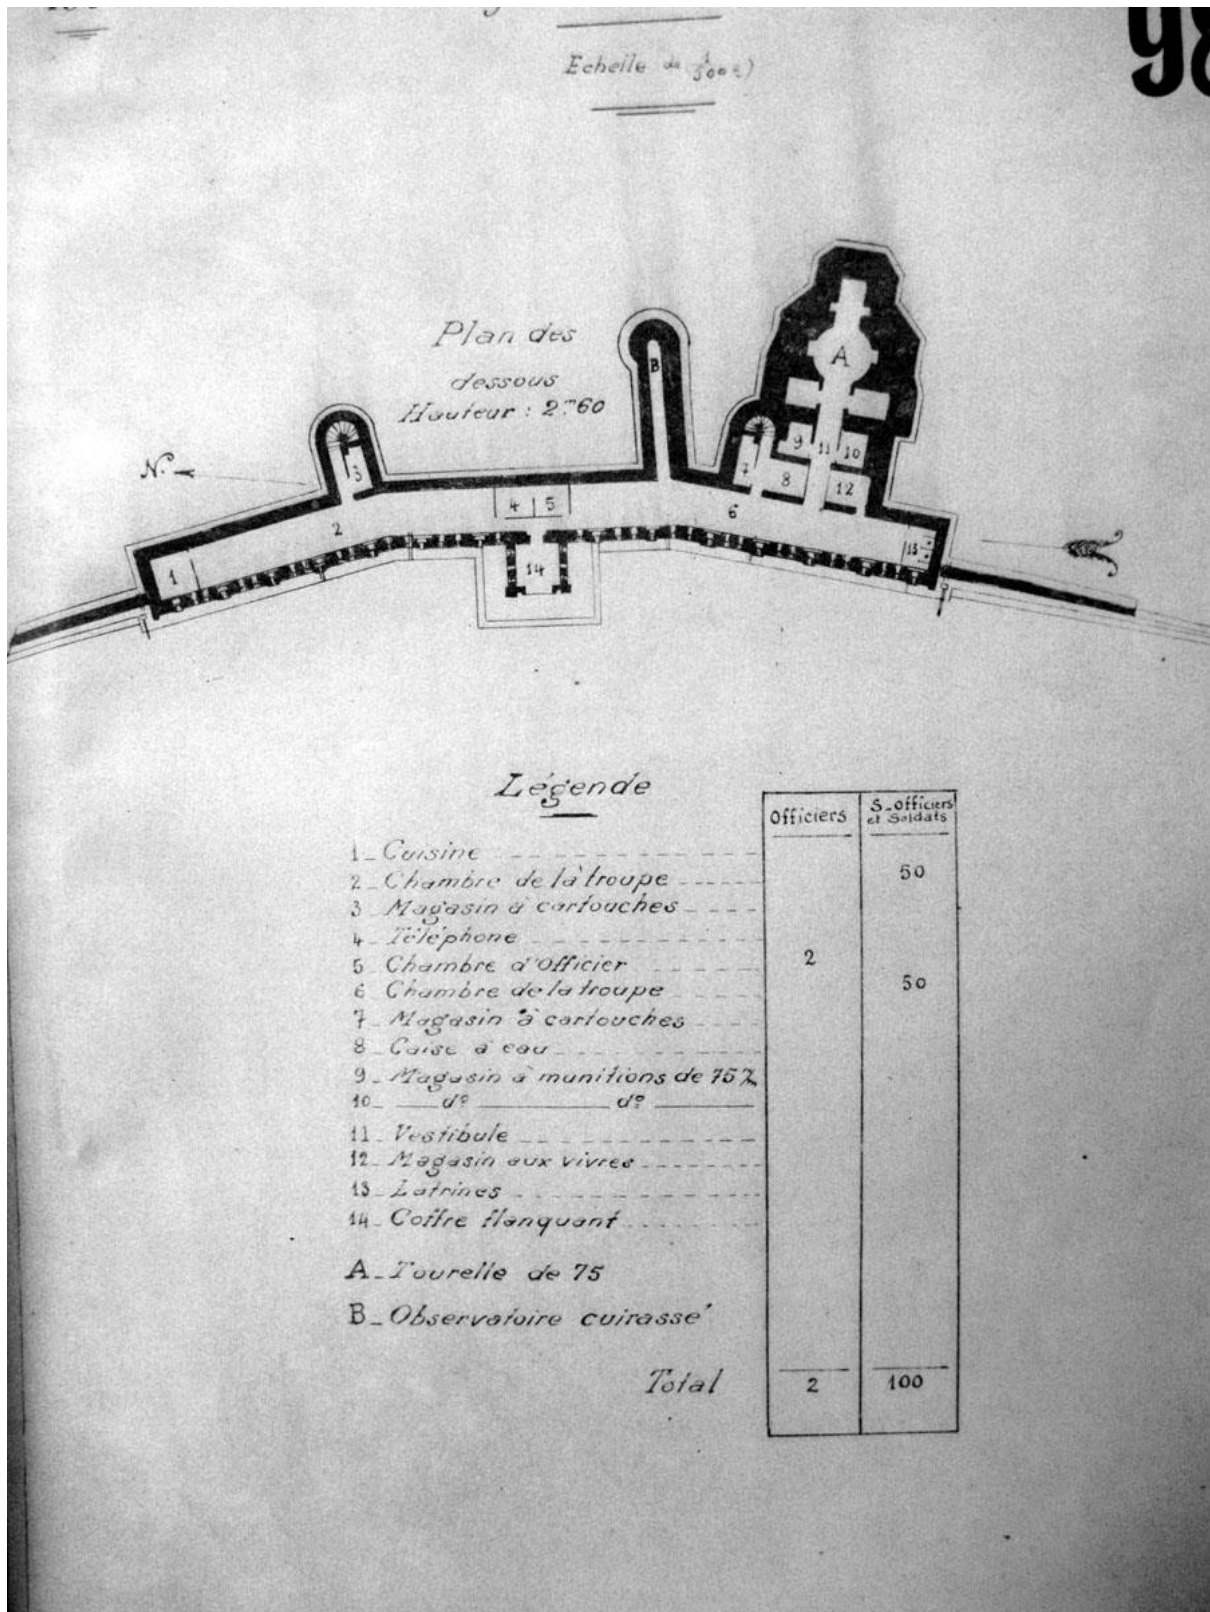 98
Echelle de 1/500e)
Plan des
dessous
Hauteur : 2m60
N.
A
B
3
9
11
10
7
8
12
4
5
6
2
13
1
14
Légende
Officiers
S_officiers
et Soldats
1_ Cuisine
2_ Chambre de la troupe
50
3_ Magasin à cartouches
4_ Téléphone
5_ Chambre d'Officier
2
6_ Chambre de la troupe
50
7_ Magasin à cartouches
8_ Caise à eau
9_ Magasin à munitions de 75 m/m
10_ do do
11_ Vestibule
12_ Magasin aux vivres
13_ Latrines
14_ Coffre flanquant
A_ Tourelle de 75
B_ Observatoire cuirassé
Total
2
100